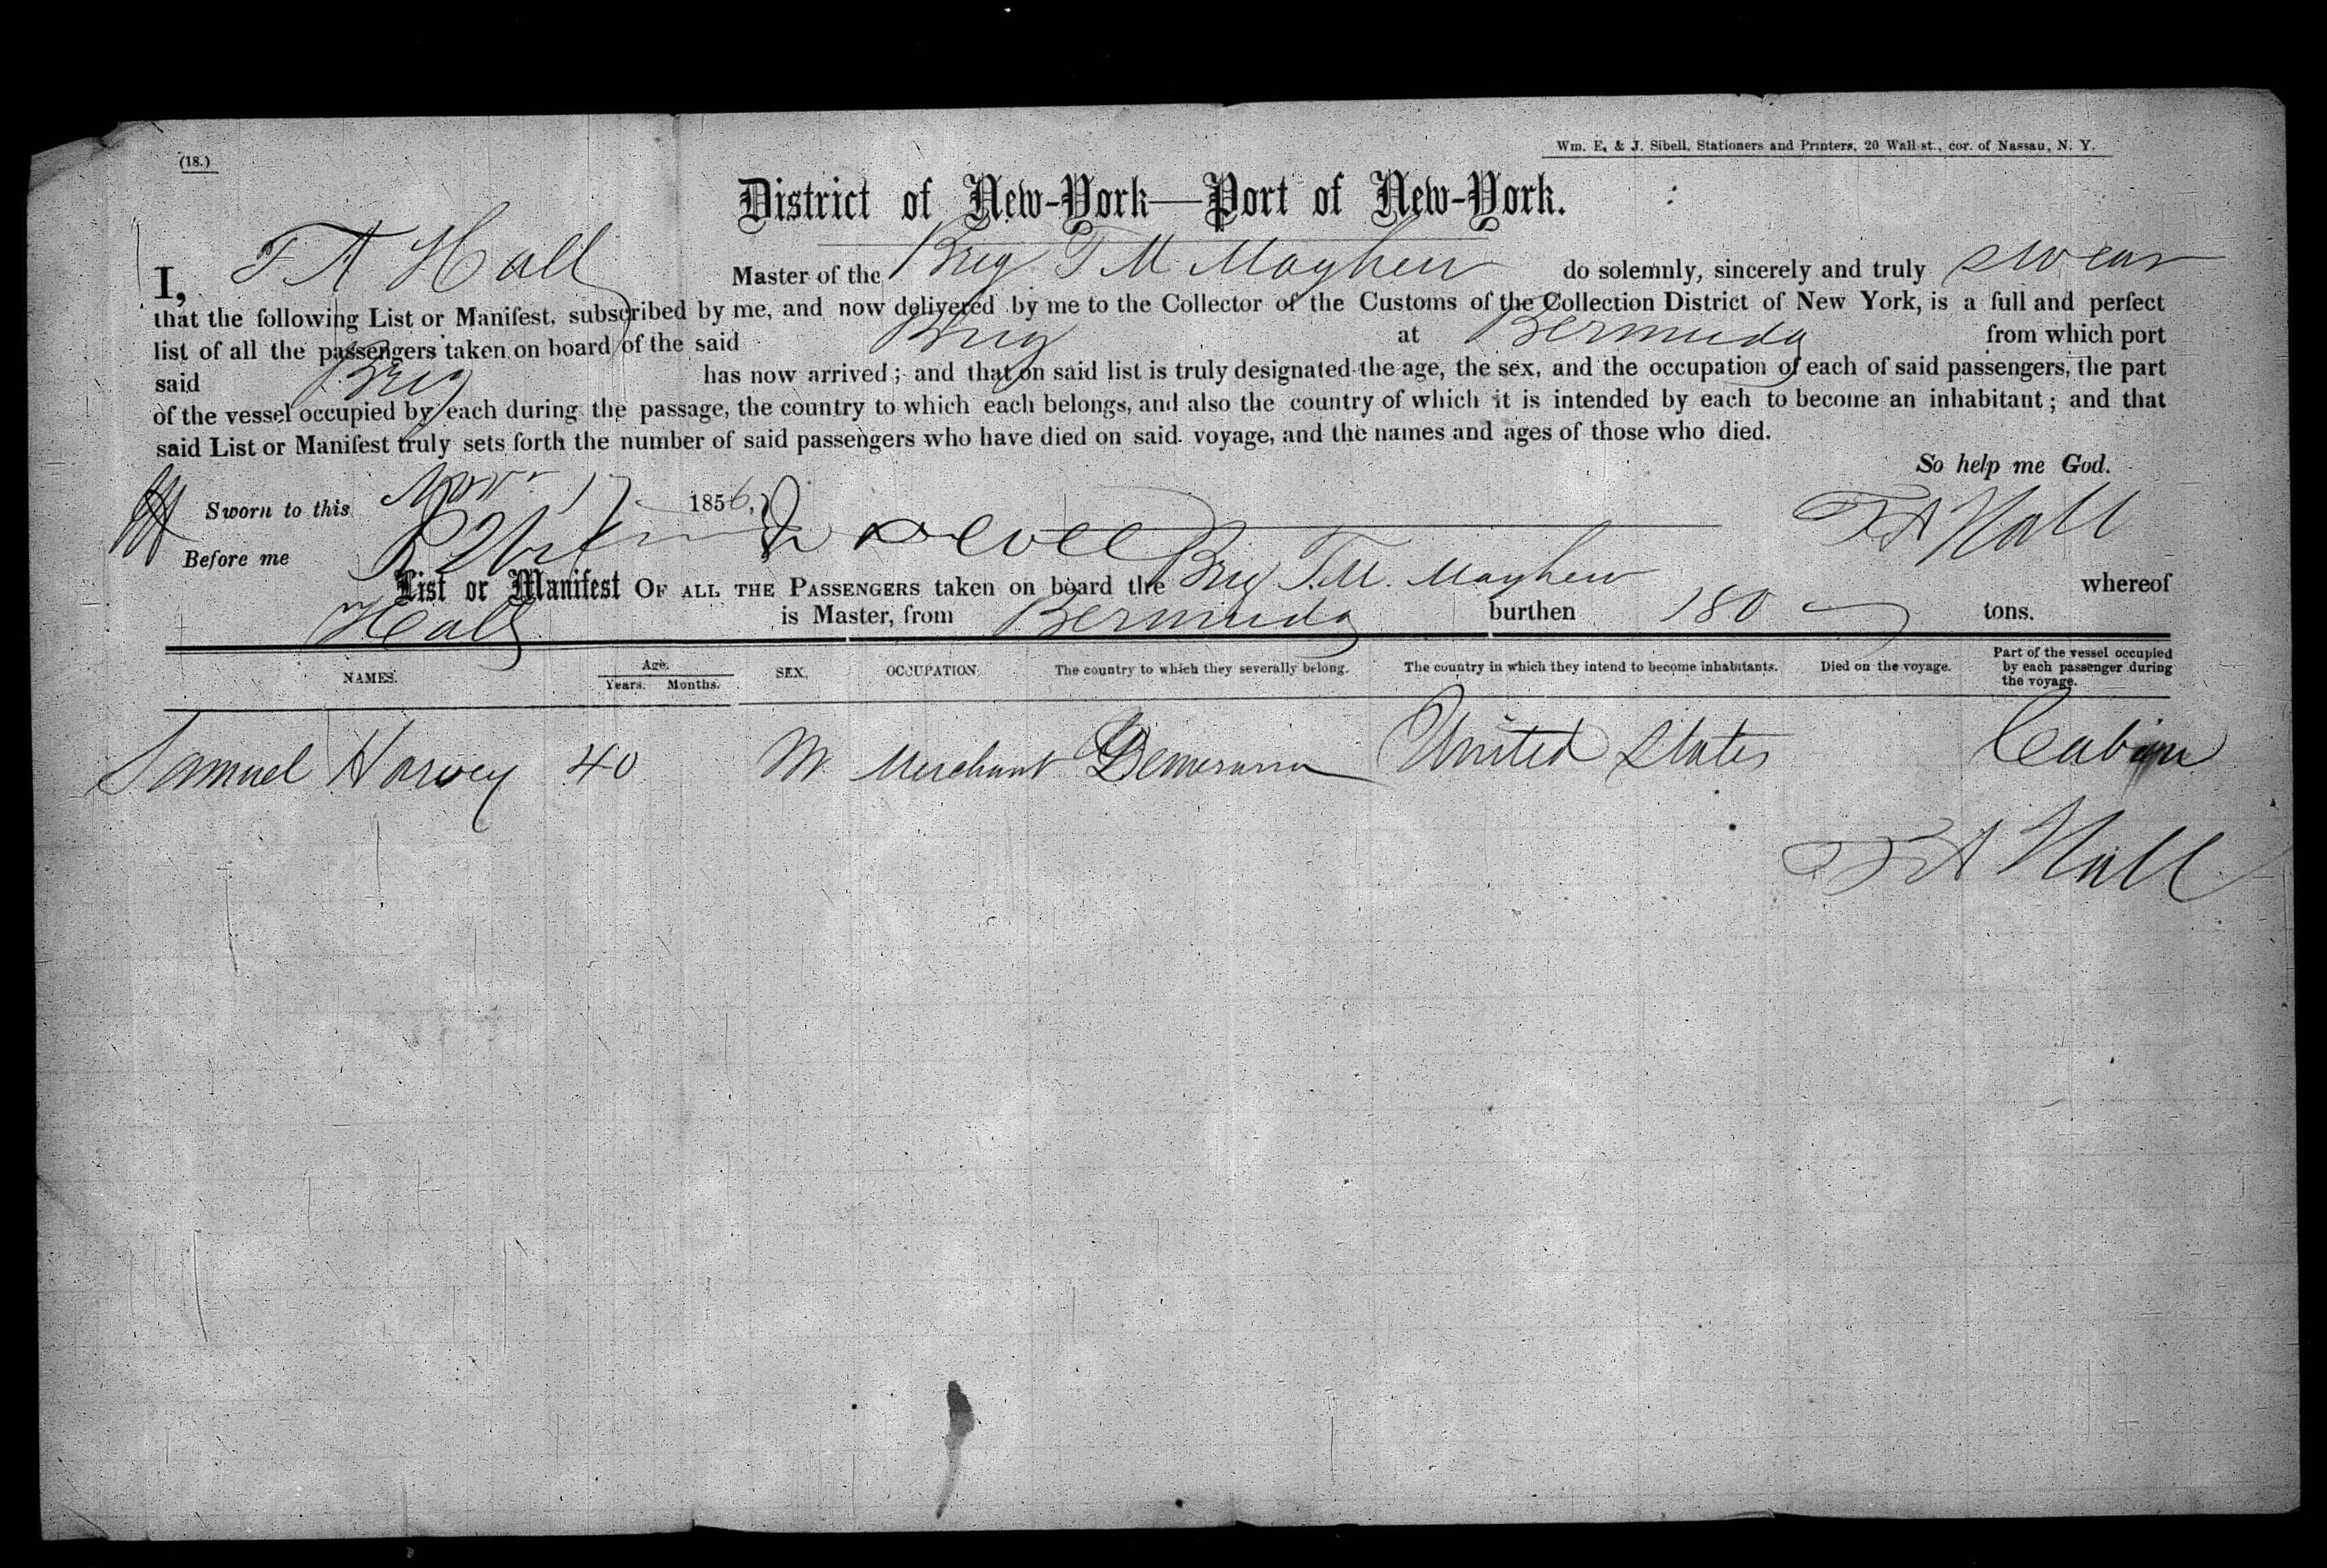 (18.)
Wm. E. & J. Sibell, Stationers and Printers, 20 Wall-st., cor. of Nassau, N. Y.
District of New-York—Port of New-York.
I, T A Hall Master of the Brig T M Mayhew do solemnly, sincerely and truly swear
that the following List or Manifest, subscribed by me, and now delivered by me to the Collector of the Customs of the Collection District of New York, is a full and perfect
list of all the passengers taken on board of the said Brig at Bermuda from which port
said Brig has now arrived; and that on said list is truly designated the age, the sex, and the occupation of each of said passengers, the part
of the vessel occupied by each during the passage, the country to which each belongs, and also the country of which it is intended by each to become an inhabitant; and that
said List or Manifest truly sets forth the number of said passengers who have died on said voyage, and the names and ages of those who died.
So help me God.
Sworn to this Nov. 17 1856, T A Hall
Before me
List or Manifest OF ALL THE PASSENGERS taken on board the Brig T. M. Mayhew whereof
Hall is Master, from Bermuda burthen 180 tons.
NAMES. Age. Years. Months. SEX. OCCUPATION. The country to which they severally belong. The country in which they intend to become inhabitants. Died on the voyage. Part of the vessel occupied by each passenger during the voyage.
Samuel Harvey 40 M Merchant Demerara United States Cabin
T A Hall